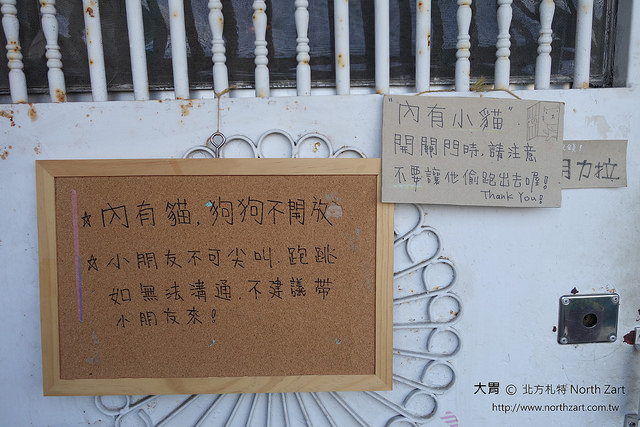 ☆ 內有貓，狗狗不開放
☆ 小朋友不可尖叫．跑跳
如無法溝通．不建議帶
小朋友來！
"內有小貓"
開關門時．請注意
不要讓他偷跑出去喔！
Thank You!
月力拉
大胃 © 北方札特 North Zart
http://www.northzart.com.tw